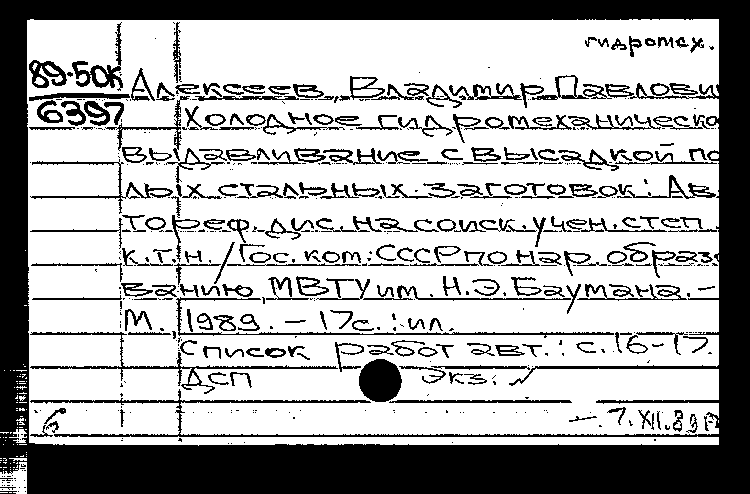 гидромех.
89-50К
6397
Алексеев, Владимир Павлови
Холодное гидромеханическо
выдавливание с высадкой по
лых стальных заготовок: Ав
тореф. дис. на соиск. учен. степ.
к.т.н. / Гос. ком. СССР по нар. образо
ванию, МВТУ им. Н.Э. Баумана. –
М., 1989. – 17с. : ил.
Список работ авт.: с. 16-17.
ДСП Экз.
6 7.XII.89